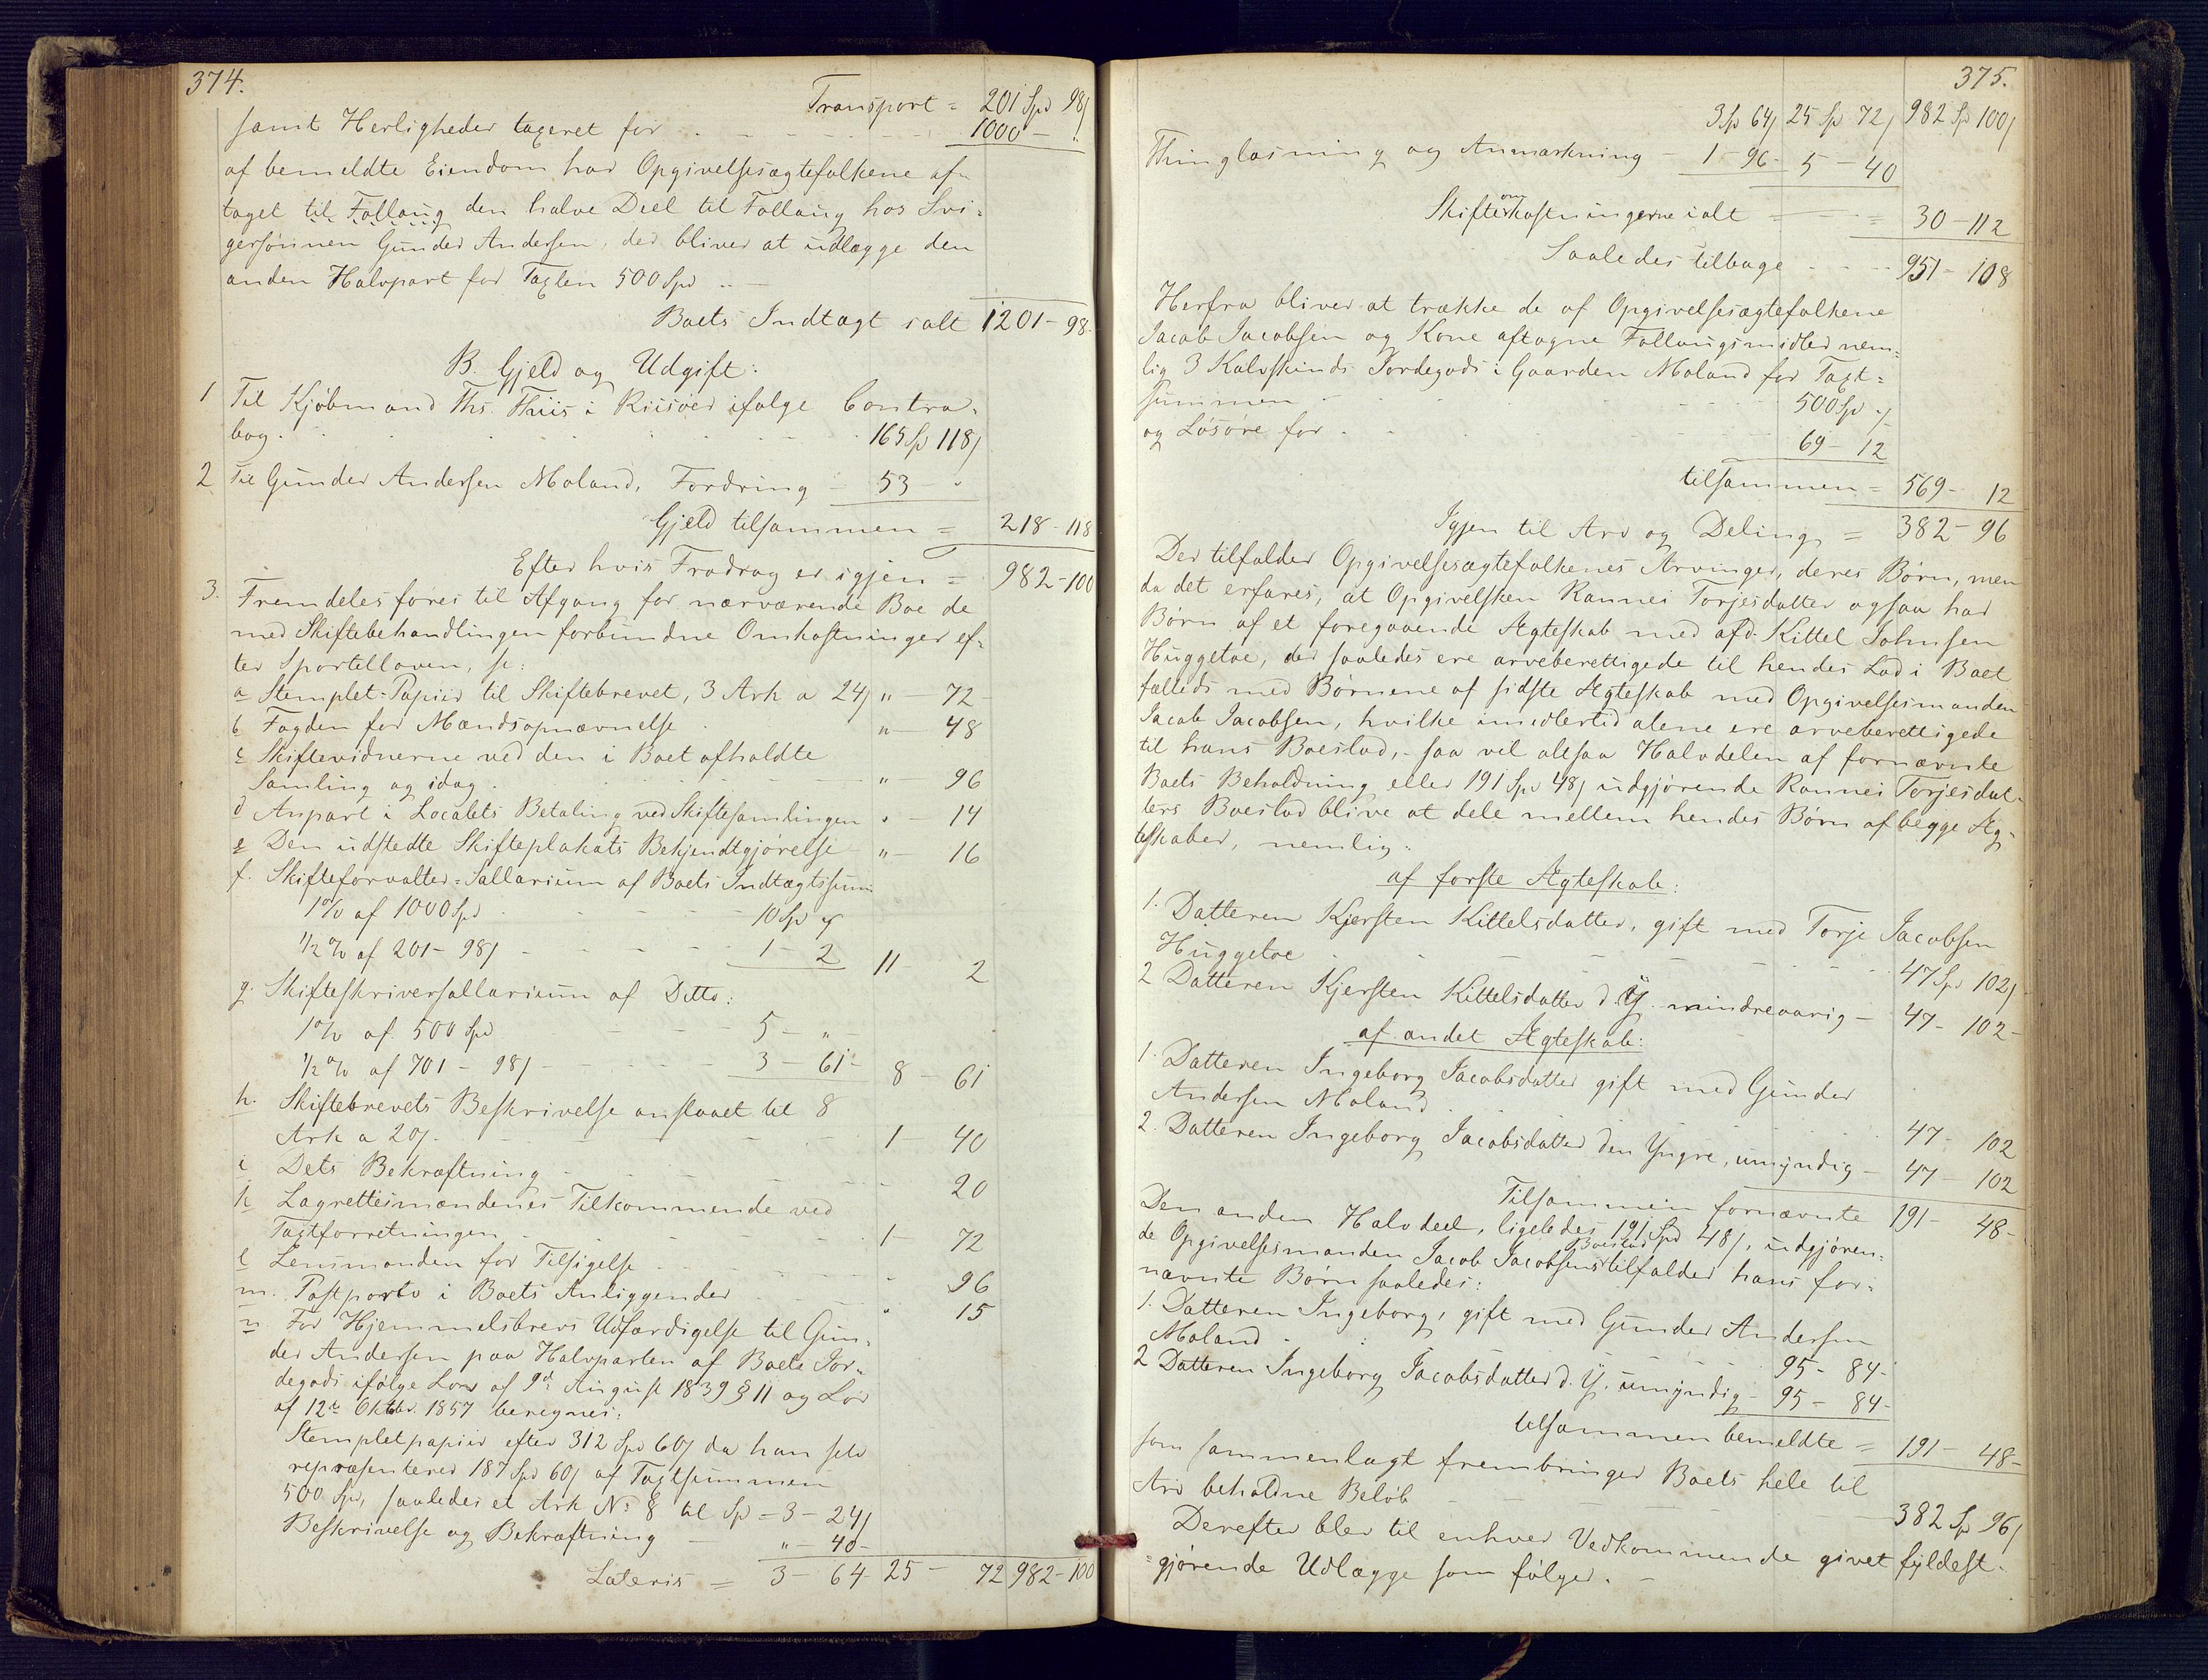 374.
Transport = 201 Spd 98/
samt Herligheder taxeret for 1000 -
af bemeldte Eiendom har Opgivelsesægtefolkene af=
taget til Follaug den halve Deel til Follaug hos Svi=
gersønnen Gunder Andersen, der bliver at udlægge den
anden Halvpart for Taxten 500 Spd
Boets Indtægt ialt 1201 - 98
B. Gjeld og Udgift:
1 Til Kjøbmand Ths. Thiis i Riisøer ifølge Contra=
bog. 165 Sp 118/
2 Til Gunder Andersen Moland, Fordring - 53 -
Gjeld tilsammen = 218 - 118
Efter hvis Fradrag er igjen = 982 - 100
3. Fremdeles føres til Afgang for nærværende Boe de
med Skiftebehandlingen forbundne Omkostninger ef=
ter Sportelloven, se:
a Stemplet-Papiir til Skiftebrevet, 3 Ark a 24/ " - 72
b Fogden for Mændsopnævnelse " - 48
c Skiftevidnerne ved den i Boet afholdte
Samling og idag " - 96
d Anpart i Localets Betaling ved Skiftesamlingen " - 14
e Den udstedte Skifteplakats Bekjendtgjørelse " - 16
f. Skifteforvalter=Sallarium af Boets Indtægtssum
1% af 1000 Spd 10 Sp "/
1/2 % af 201 - 98/ - 1 - 2 11 - 2
g. Skifteskriversallarium af Ditto:
1% af 500 Spd 5 - "
1/2 % af 701 - 98/ - 3 - 61 - 8 - 61
h. Skiftebrevets Beskrivelse anslaaet til 8
Ark a 20/. 1 - 40
i Dets Bekræftning 20
k Lagrettesmændenes Tilkommende ved
Taxtforretningen 1 - 72
l Lensmanden for Tilsigelse - 96
m. Postporto i Boets Anliggender " 15
n For Hjemmelsbrevs Udfærdigelse til Gun=
der Andersen paa Halvparten af Boets Jor=
degods ifølge Lov af 9de August 1839 § 11 og Lov
af 12te Oktbr. 1857 beregnes:
Stempletpapiir efter 312 Spd 60/ da han selv
repræsenterer 187 Spd 60/ af Taxtsummen
500 Spd, saaledes et Ark No 8 til Sp = 3 - 24/
Beskrivelse og Bekræftning - " - 40 -
Lateris = 3 - 64 25 - 72 982 - 100
375.
3 Sp 64/ 25 Sp 72/ 982 Sp 100/
Thinglæsning og Anmærkning - 1 - 96 - 5 - 40
Skifteomkostningerne ialt = 30 - 112
Saaledes tilbage 951 - 108
Herfra bliver at trække de af Opgivelsesægtefolkene
Jacob Jacobsen og Kone aftagne Follaugsmidler nem=
lig 3 Kalvskinds Jordegods i Gaarden Moland for Taxt=
summen 500 Sp "/
og Løsøre for 69 - 12
tilsammen = 569 - 12
Igjen til Arv og Deling = 382 - 96
Der tilfalder Opgivelsesægtefolkenes Arvinger, deres Børn, men
da det erfares, at Opgivelsken Rannei Torjesdatter ogsaa har
Børn af et foregaaende Ægteskab med afd. Kittel Johnsen
Huggetoe, der saaledes ere arveberettigede til hendes Lod i Boet
fælleds med Børnene af sidste Ægteskab med Opgivelsesmanden
Jacob Jacobsen, hvilke imidlertid alene ere arveberettigede
til hans Boeslod, - saa vil altsaa Halvdelen af fornævnte
Boets Beholdning eller 191 Spd 48/ udgjørende Rannei Torjesdat=
ters Boeslod blive at dele mellem hendes Børn af begge Æg=
teskaber, nemlig:
af første Ægteskab:
1. Datteren Kjersten Kittelsdatter, gift med Torje Jacobsen
Huggetoe 47 Spd 102/
2 Datteren Kjersten Kittelsdatter d. Y. mindreaarig - 47 - 102 -
af andet Ægteskab:
1. Datteren Ingeborg Jacobsdatter gift med Gunder
Andersen Moland 47 - 102
2. Datteren Ingeborg Jacobsdatter den Yngre, umyndig - 47 - 102
Tilsammen fornævnte 191 - 48 -
Den anden Halvdeel, ligeledes 191 Spd 48/, udgjøren=
de Opgivelsesmanden Jacob Jacobsens Boeslod tilfalder hans for=
nævnte Børn saaledes:
1. Datteren Ingeborg, gift med Gunder Andersen
Moland 95 - 84 -
2 Datteren Ingeborg Jacobsdatter d. Y. umyndig - 95 - 84 -
tilsammen bemeldte = 191 - 48 -
som sammenlagt frembringer Boets hele til
Arv beholdne Beløb 382 Sp 96/
Derefter blev til enhver Vedkommende givet fyldest=
=gjørende Udlægge som følger. -